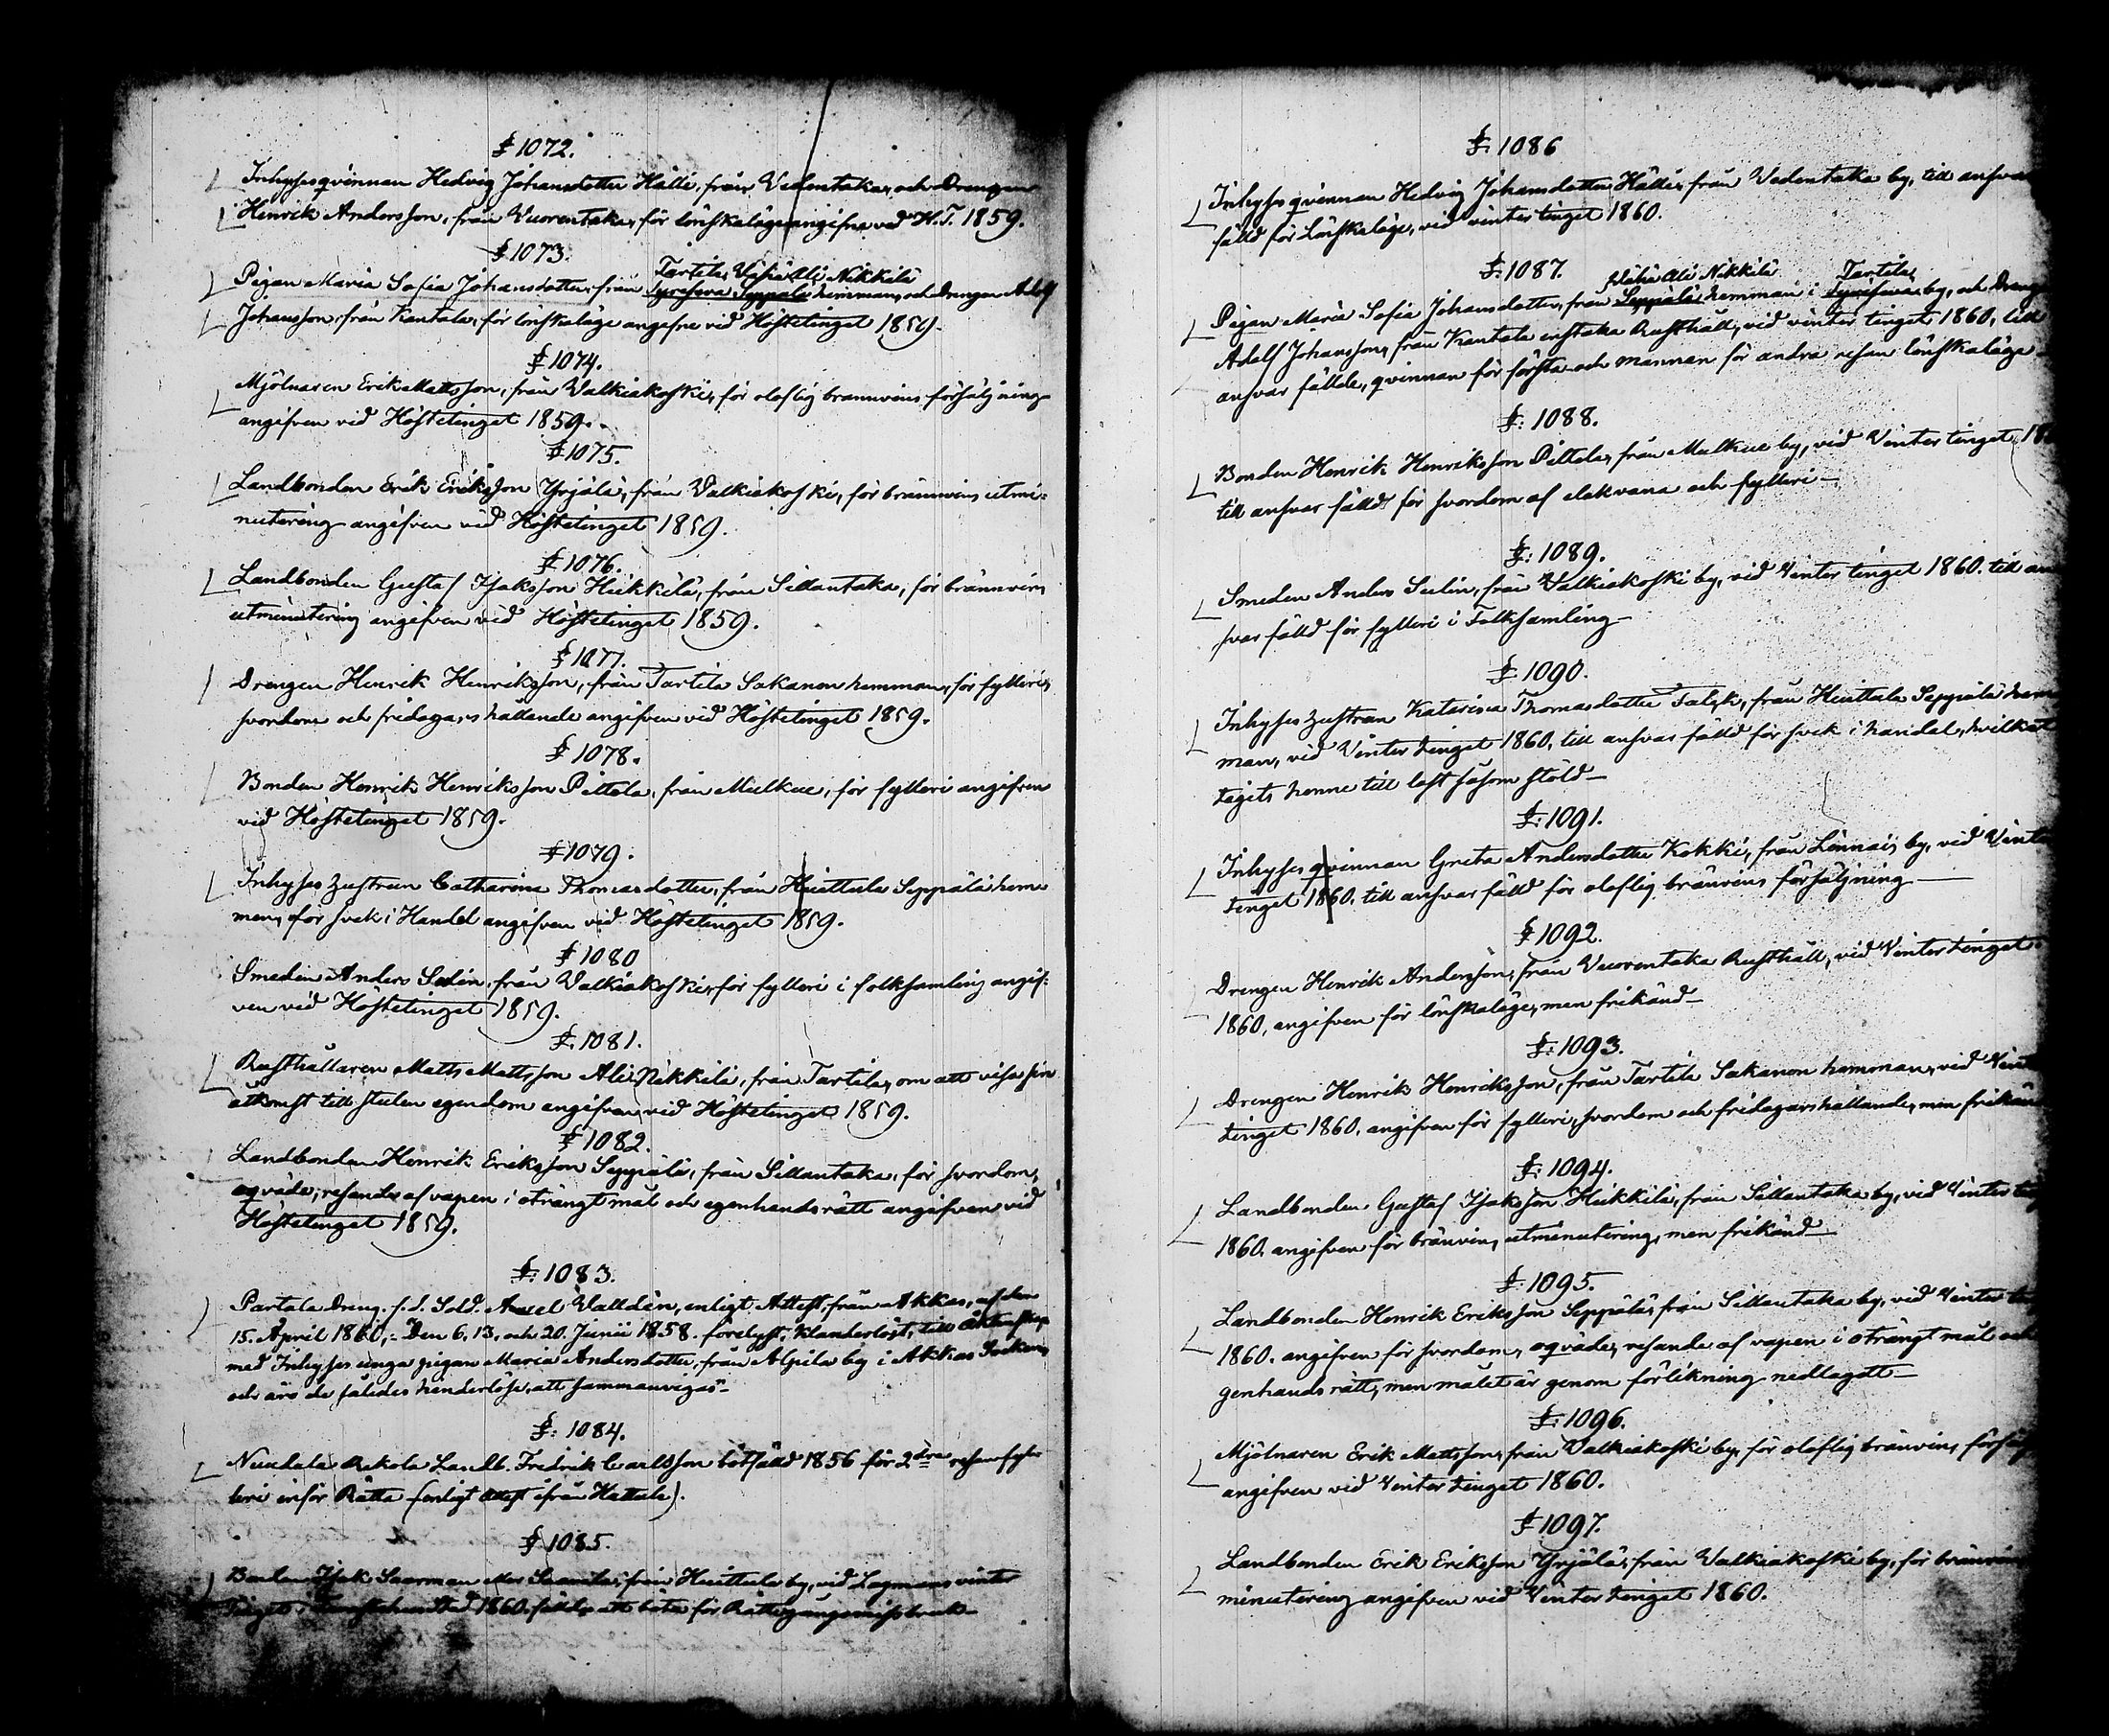 § 1072.
Inhysesqvinnan Hedvig Johansdotter Hälli, från Vedentaka, och Drengen
Henrik Andersson, från Vuorentaka, för lönskaläge angifne vid H.T. 1859.
§ 1073.
Tarttila, Vähä Ali Nikkilä
Pigan Maria Sofia Johansdotter, från Seppälä hemman, och Drengen Adolf
Johansson, från Kantala, för lönskaläge angifne vid Höstetinget 1859.
§ 1074.
Mjölnaren Erik Mattsson, från Valkiakoski, för oloflig brannvins försäljning
angifven vid Höstetinget 1859.
§ 1075.
Landbonden Erik Eriksson Yrjälä, från Valkiakoski, för brännvins utmi-
nutering angifven vid Höstetinget 1859.
§ 1076.
Landbonden Gustaf Isaksson Heikkilä, från Sillantaka, för brännvins
utminutering angifven vid Höstetinget 1859.
§ 1077.
Drengen Henrik Henriksson, från Tarttila Sakanen hemman, för fylleri,
svordom och fridagars hållande angifven vid Höstetinget 1859.
§ 1078.
Bonden Henrik Henriksson Pittala, från Mulkue, för fylleri angifven
vid Höstetinget 1859.
§ 1079.
Inhyses hustrun Catharina Thomasdotter, från Huittula Seppälä hem
man, för svek i Handel angifven vid Höstetinget 1859.
§ 1080
Smeden Anders Selin, från Valkiakoski, för fylleri i folksamling angif-
ven vid Höstetinget 1859.
§. 1081.
Rusthållaren Matts Mattsson Ali Nikkilä, från Tarttila, om att visa sin
åtkomst till stulen egendom angifven vid Höstetinget 1859.
§ 1082.
Landbonden Henrik Eriksson Seppälä, från Sillantaka, för svordom,
oqväde, resande af vapen i oträngt mål och egenhandsrätt angifven vid
Höstetinget 1859.
§: 1083.
Partala Dreng. f.d. Sold. Axel Walldén, enligt Attest, från Akkas, af den
15. April 1860, "Den 6, 13, och 20. Junii 1858. förelyst, klanderlöst, till Äktenskap
med Inhyses unga pigan Maria Andersdotter, från Alpila by i Akkas Socken,
och äro de således hinderlöse, att sammanvigas"
§: 1084.
Landb. Fredrik Carlsson botfälld 1856 för 2dra resan fyl-
leri inför Rätta (enligt attest ifrån Hattula).
§ 1085.
Bonden Isak Saarman eller från Huittula by, vid Lagmans vinter
Tinget i 1860. fälld att böta för Rättegångsmissbruk
§: 1086
Inhyses qvinnan Hedvig Johansdotter Hälli, från Vedentaka by, till ansvar
fälld för Lönskaläge, vid vintertinget 1860.
§: 1087.
Vähä Ali Nikkilä Tarttila,
Pigan Maria Sofia Johansdotter, från Seppälä hemman i by, och Dreng
Adolf Johansson, från Kantala enstaka Rusthåll, vid vinter tinget 1860, till
ansvar fällde, qvinnan för första och mannen för andra resan lönskaläge
§: 1088.
Bonden Henrik Henriksson Pittala, från Mulkue by, vid Vinter tinget 18
till ansvar fälld för svordom af elak vana och fylleri
§: 1089.
Smeden Anders Selin, från Valkiakoski by, vid Vinter tinget 1860. till an
svar fälld för fylleri i Folksamling
§: 1090.
Inhyses hustrun Katarina Thomasdotter Falck, från Huittula Seppälä hem
man, vid Vinter tinget 1860, till ansvar fälld för svek i handel, hvilket
tagits henne till last såsom stöld
§: 1091.
Inhyses qvinnan Greta Andersdotter Kokki, från Linnais by, vid Vinter
tinget 1860. till ansvar fälld för oloflig brännvins försäljning
§ 1092.
Drengen Henrik Andersson, från Vuorentaka Rusthåll, vid Vinter tinget
1860, angifven för lönskaläge, men frikänd
§: 1093.
Drengen Henrik Henriksson, från Tarttila Sakanen hemman, vid Vint
tinget 1860. angifven för fylleri, svordom och fridagarshållande, men frikän
§: 1094.
Landbonden Gustaf Isaksson Heikkilä, från Sillantaka by, vid Vinter ting
1860. angifven för brännvins utminutering, men frikänd
§: 1095.
Landbonden Henrik Eriksson Seppälä, från Sillantaka by, vid Vinter tin
1860. angifven för svordom, oqväde, resande af vapen i oträngt mål och
genhands rätt, men målet är genom förlikning nedlagdt
§: 1096.
Mjölnaren Erik Mattsson, från Valkiakoski by, för oloflig brännvins försäl
angifven vid Vinter tinget 1860.
§ 1097.
Landbonden Erik Eriksson Yrjälä, från Valkiakoski by, för brännvin
minutering angifven vid Vinter tinget 1860.